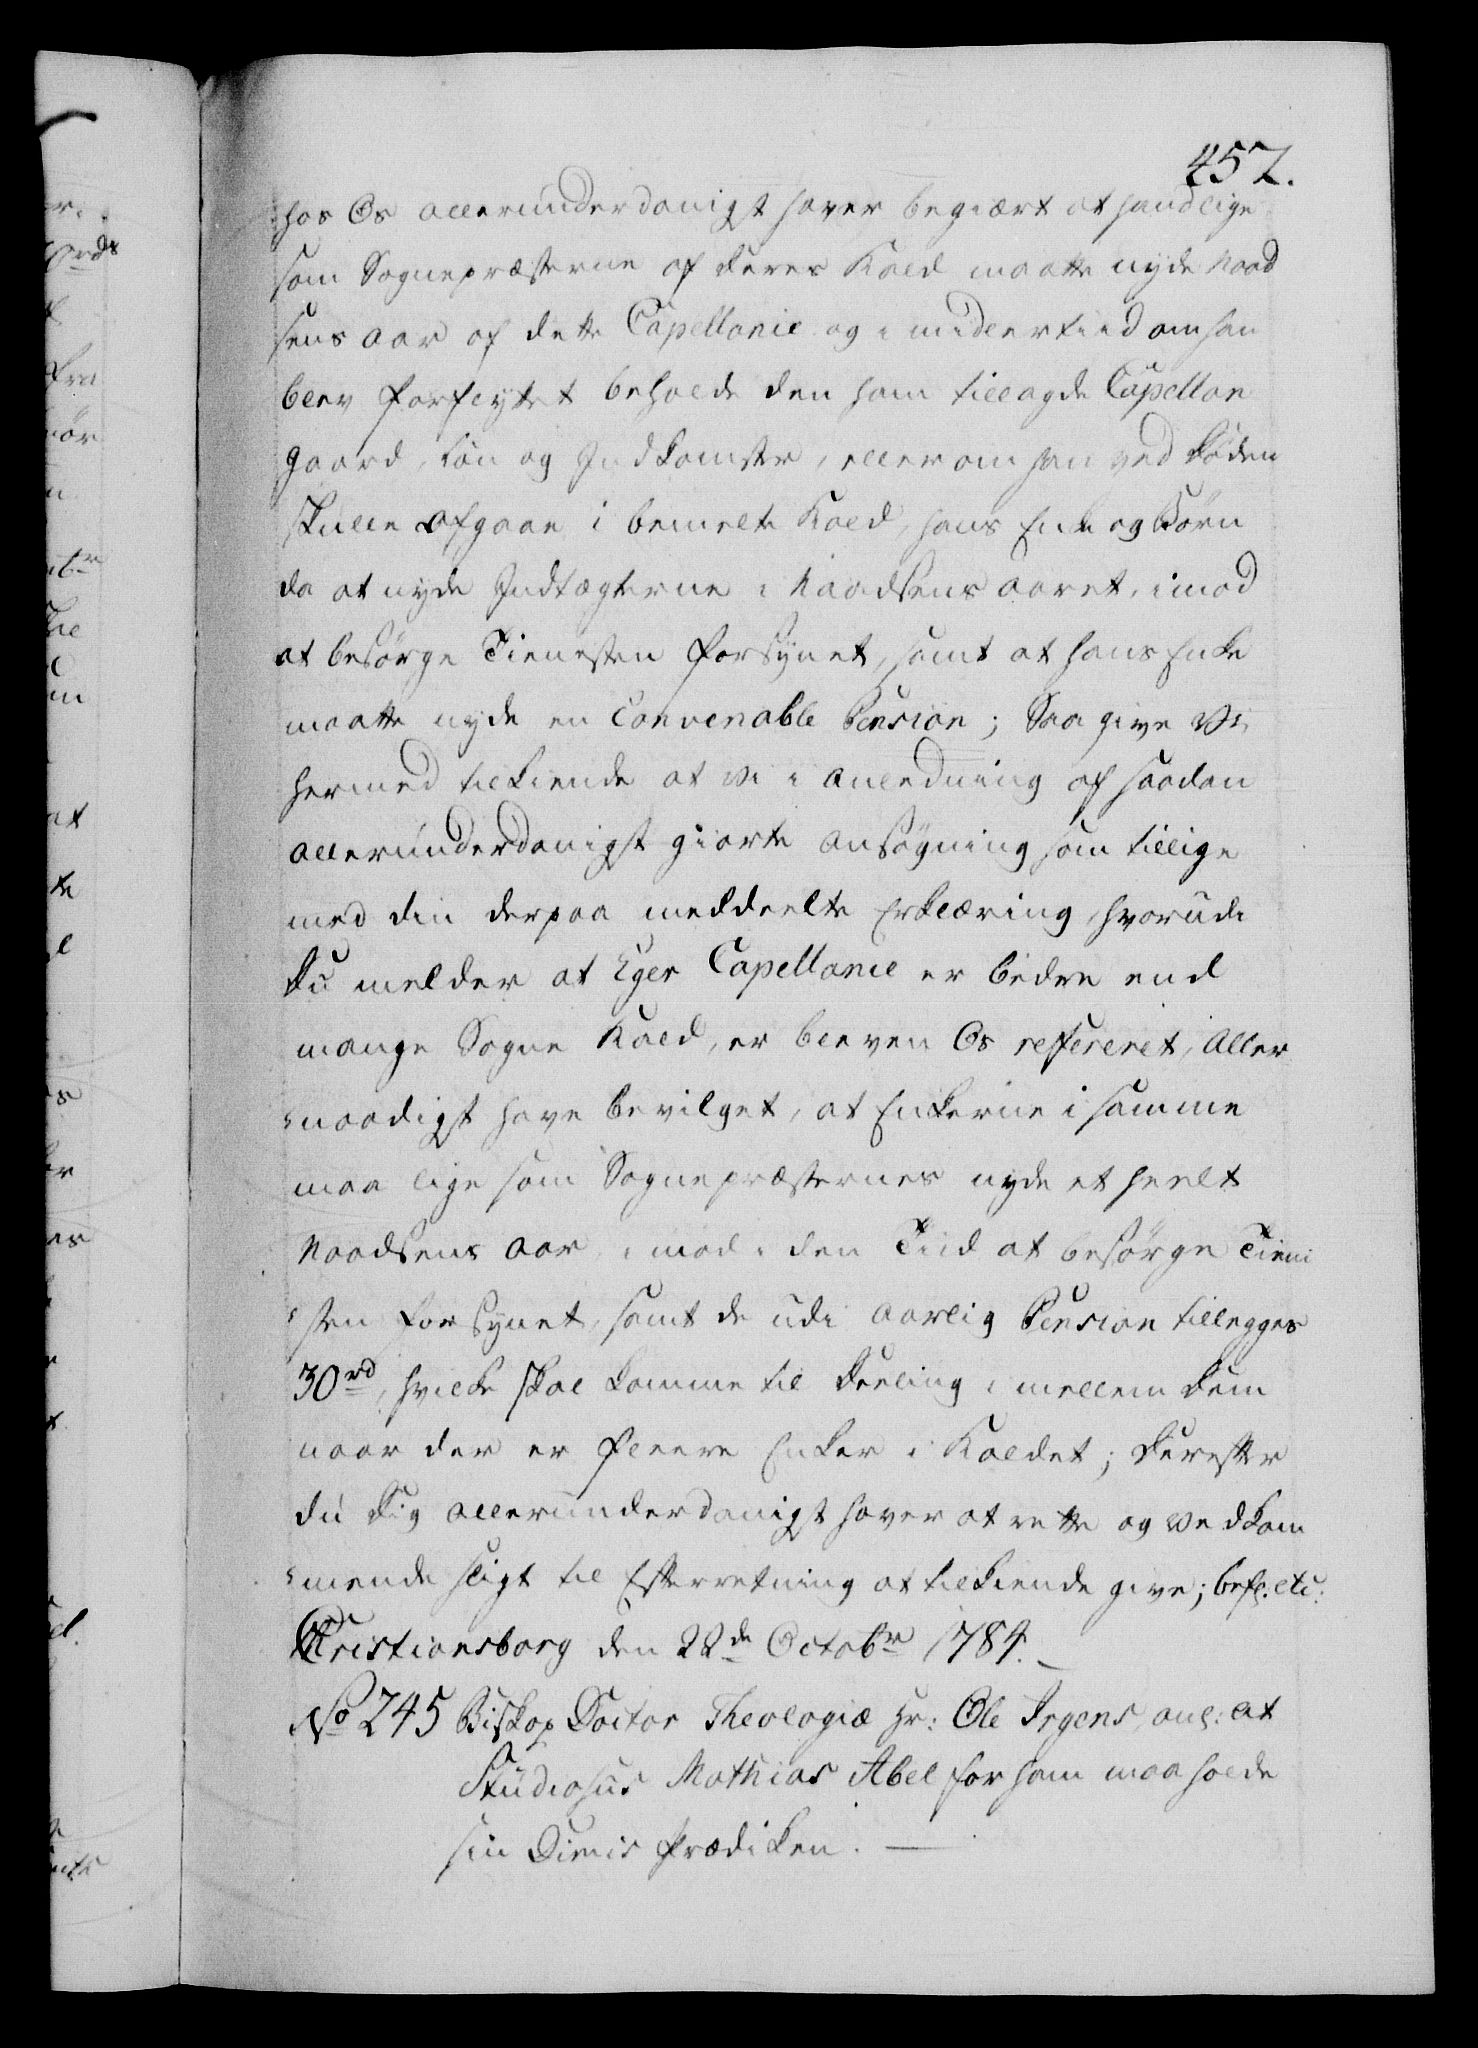 452.
hos Os allerunderdanigst haver begiært at hand lige
som Sognepræsterne af deres Kald maatte nyde Naad
sens aar af dette Capellanie og imidlertiid om han
blev forflyttet beholde den ham tillagde Capellan
gaard, Løn og Indkomster, eller om han ved Døden
skulle afgaae i bemelte Kald, hans Enke og Børn
da at nyde Indtægterne i Naadsens aaret, imod
at besørge Tienesten forsynet, samt at hans Enke
maatte nyde en Convenable Pension; Saa give Vi
hermed tilkiende at vi i anledning af saadan
allerunderdanigst giorte ansøgning som tillige
med din derpaa meddeelte Erklæring, hvorudi
Du melder at Eger Capellanie er bedre end
mange Sogne Kald, er bleven Os refereret, Aller
naadigst have bevilget, at Enkerne i samme
maa lige som Sognepræsternes nyde et heelt
Naadsens aar, imod i den Tiid at besørge Tieni
sten forsynet, samt de udi aarlig Pension tillegges
30 rd, hvilke skal komme til Deeling imellem dem
naar der er fleere Enker i Kaldet; Derefter
du Dig allerunderdanigst haver at rette og vedkom
mende sligt til Efterretning at tilkiende give; befl. etc:
Christiansborg den 22de Octobr 1784.
No 245 Biskop Doctor Theologiæ Hr: Ole Irgens, anl: at
Studiosus Mathias Abel for ham maa holde
sin Dimis Prædiken.